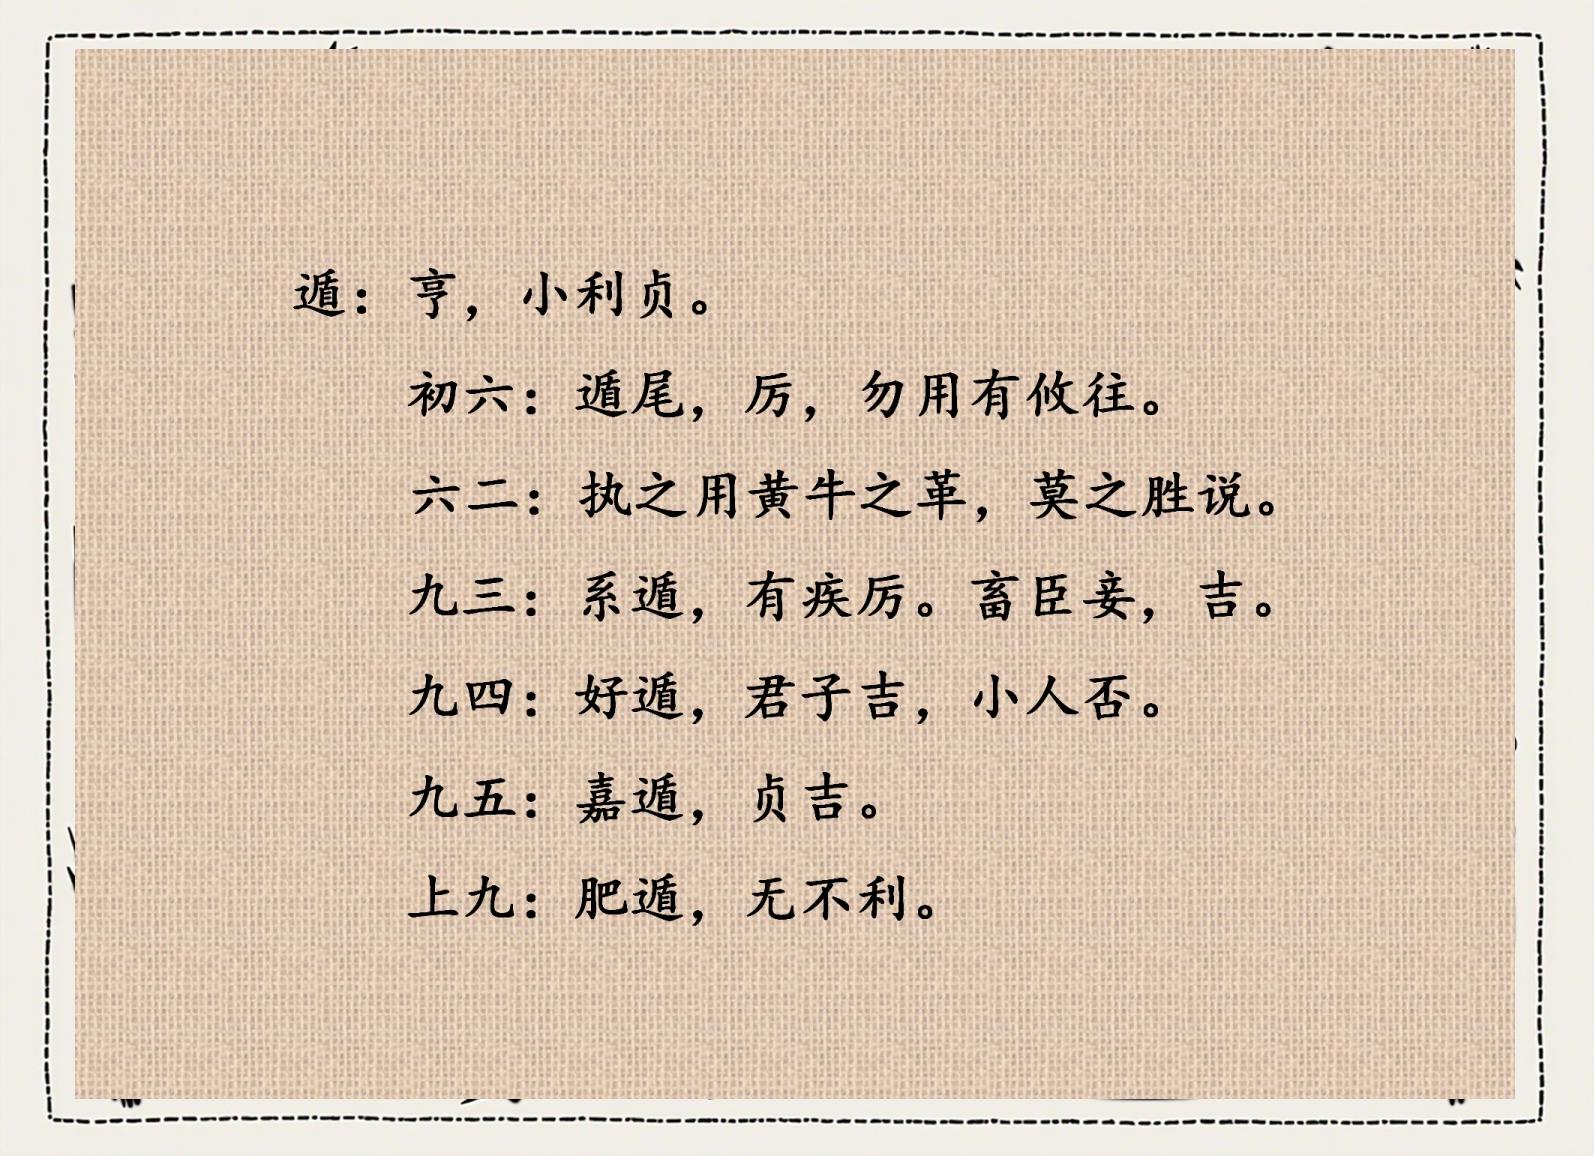 遁：亨，小利贞。
初六：遁尾，厉，勿用有攸往。
六二：执之用黄牛之革，莫之胜说。
九三：系遁，有疾厉。畜臣妾，吉。
九四：好遁，君子吉，小人否。
九五：嘉遁，贞吉。
上九：肥遁，无不利。